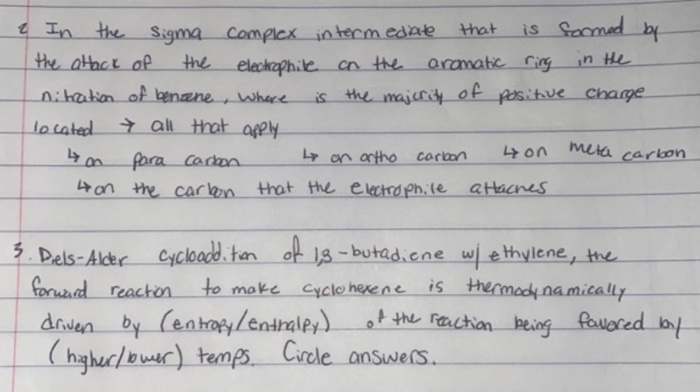 2 In the sigma complex intermediate that is formed by
the attack of the electrophile on the aromatic ring in the
nitration of benzene, where is the majority of positive charge
located → all that apply
↳ on para carbon ↳ on ortho carbon ↳ on meta carbon
↳ on the carbon that the electrophile attaches
3. Diels-Alder cycloaddition of 1,3-butadiene w/ ethylene, the
forward reaction to make cyclohexene is thermodynamically
driven by (entropy/enthalpy) of the reaction being favored by
(higher/lower) temps. Circle answers.